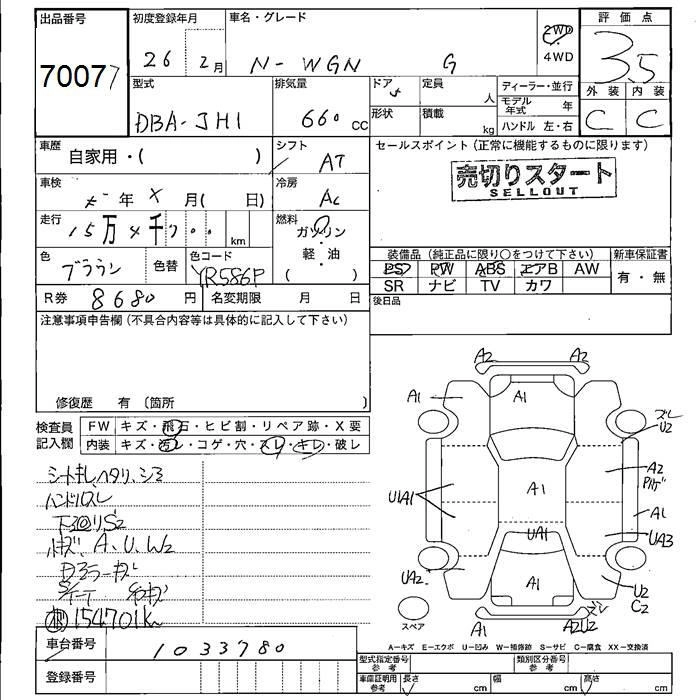 出品番号
70077
初度登録年月
26年 2月
車名・グレード
N-WGN G
2WD
・
4WD
評価点
3.5
型式
DBA-JH1
排気量
660 cc
ドア
5
定員
人
形状
積載
kg
ディーラー・並行
モデル年式 年
ハンドル 左・右
外装 内装
C C
車歴
自家用・( )
シフト
AT
セールスポイント(正常に機能するものに限ります)
売切りスタート
SELLOUT
車検
年 X 月( 日)
冷房
AC
走行
15万4千700 km
燃料
ガソリン
・
軽・油
( )
色
ブラウン
色替
色コード
YR586P
装備品(純正品に限り○をつけて下さい)
PS PW ABS エアB AW
SR ナビ TV カワ
新車保証書
有・無
R券 8680 円
名変期限 月 日
後日品
注意事項申告欄(不具合内容等は具体的に記入して下さい)
修復歴 有(箇所 )
検査員記入欄
FW キズ・飛石・ヒビ割・リペア跡・X要
内装 キズ・汚レ・コゲ・穴・スレ・キレ・破レ
シートキレ、ヘタリ、シミ
ハンドルスレ
下廻りS2
A、U、W2
ドアミラーキズ
154701K
車台番号 1033780
登録番号
A2 A2
A1 A1
ズレ
U2
A2
A1
A1
U1A1
UA1
UA3
UA2
A1
U2
C2
スペア
A1
ズレ
A2U2
A-キズ E-エクボ U-凹み W-補修跡 S-サビ C-腐食 XX-交換済
型式指定番号
参考
類別区分番号
参考
車庫証明用
参考
長さ cm
幅 cm
高さ cm